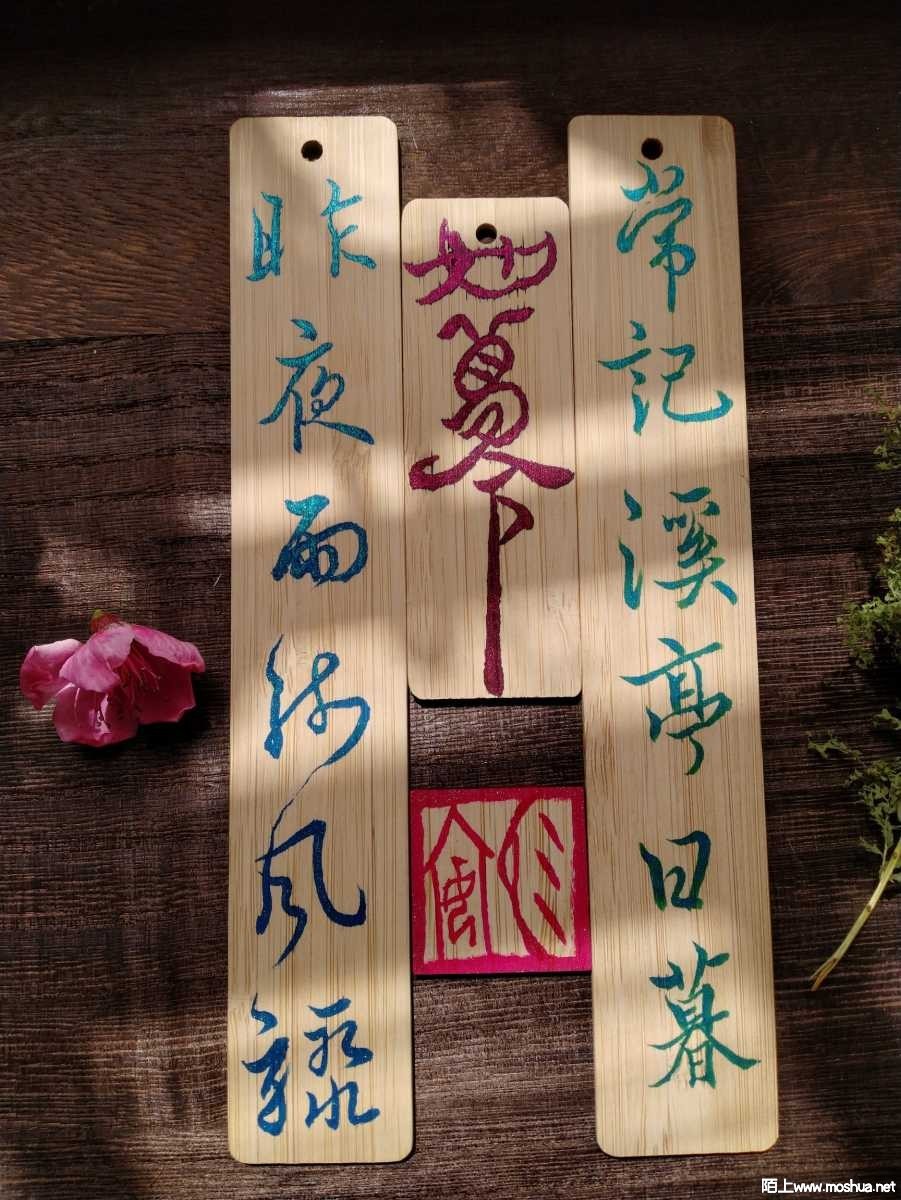 常記溪亭日暮
如夢令
昨夜雨疏風驟
陌上www.moshua.net